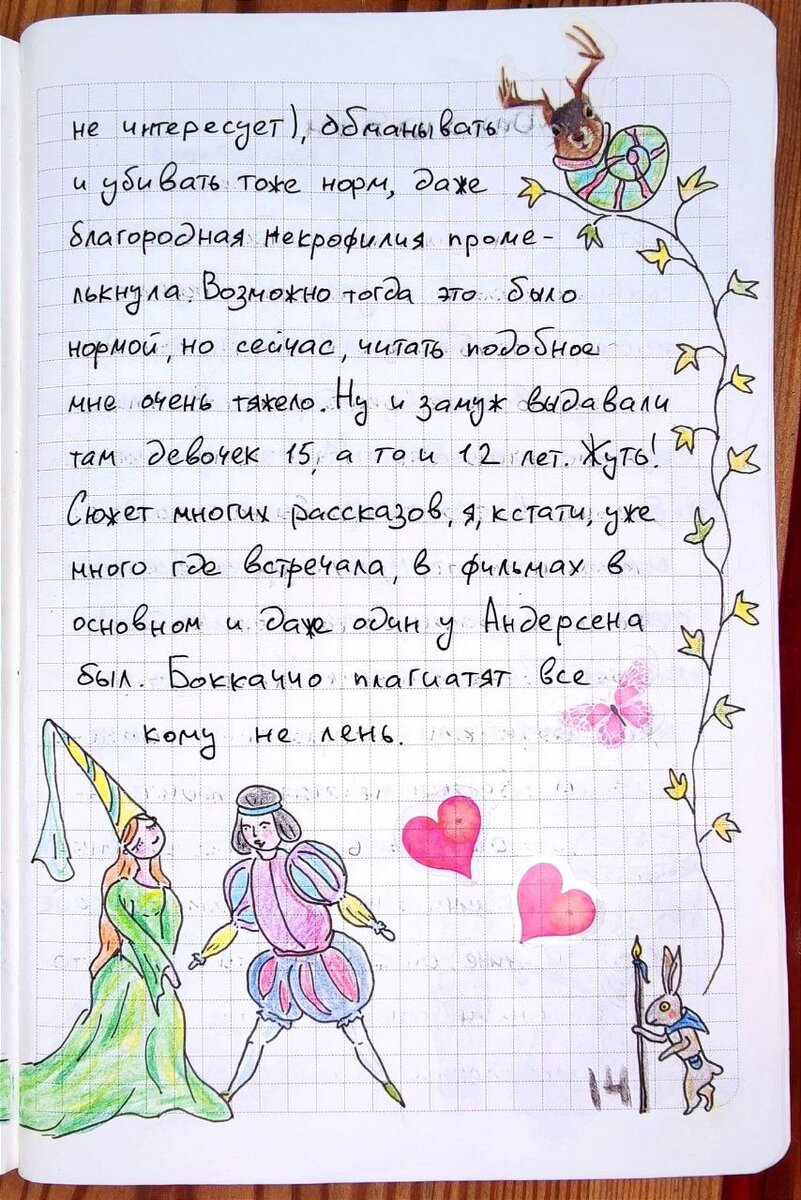 не интересует), обманывать
и убивать тоже норм, даже
благородная некрофилия проме-
лькнула. Возможно тогда это было
нормой, но сейчас, читать подобное
мне очень тяжело. Ну и замуж выдавали
там девочек 15, а то и 12 лет. Жуть!
Сюжет многих рассказов, я, кстати, уже
много где встречала, в фильмах в
основном и даже один у Андерсена
был. Боккаччо плагиатят все
кому не лень.
14